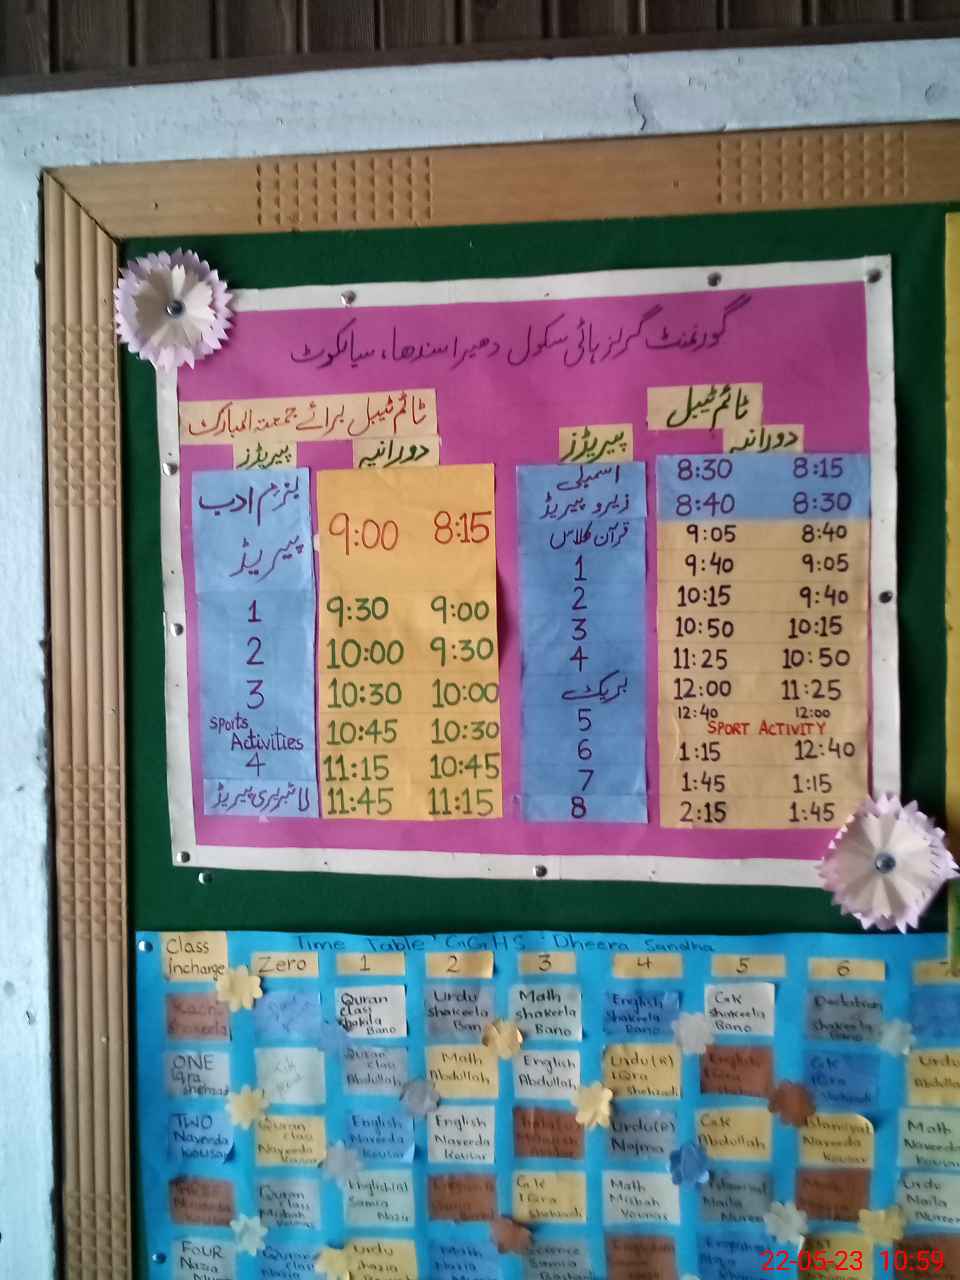 گورنمنٹ گرلز ہائی سکول دھیرا سندھا، سیالکوٹ
ٹائم ٹیبل
پیریڈز دورانیہ
اسمبلی 8:30 8:15
زیرو پیریڈ 8:40 8:30
قرآن کلاس 9:05 8:40
1 9:40 9:05
2 10:15 9:40
3 10:50 10:15
4 11:25 10:50
بریک 12:00 11:25
5 12:40 12:00
SPORT ACTIVITY
6 1:15 12:40
7 1:45 1:15
8 2:15 1:45
ٹائم ٹیبل برائے جمعتہ المبارک
پیریڈز دورانیہ
بزم ادب
پیریڈ
9:00 8:15
1 9:30 9:00
2 10:00 9:30
3 10:30 10:00
Sports
Activities 10:45 10:30
4 11:15 10:45
لائبریری پیریڈ 11:45 11:15
Time Table GGHS Dheera Sandha
Class
incharge Zero 1 2 3 4 5 6
Shakeela
Quran
class
Shakila
Bano
Urdu
Shakeela
Bano
Math
Shakeela
Bano
English
Shakeela
Bano
G.K
Shakeela
Bano
Shakeela
Bano
ONE
Iqra
Shehzadi
Quran
class
Abdullah
Math
Abdullah
English
Abdullah
Urdu(A)
IQra
Shehzadi
English
IQra
G.K
IQra
Shehzadi
Urdu
TWO
Naveeda
Kousar
Quran
class
Naveeda
Kousar
English
Naveeda
Kousar
English
Naveeda
Kousar
Urdu(P)
Najma
G.K
Abdullah
Islamiyat
Naveeda
Kousar
Math
Naveeda
Kousar
Naveeda
Kousar
Quran
class
Misbah
Younas
English(B)
Samia
Nazir
G.K
IQra
Shehzadi
Math
Misbah
Younas
Urdu
Maila
Nureen
FOUR
Nazia
Quran
class
Urdu
Shazia
Math
Science
English
22-05-23 10:59